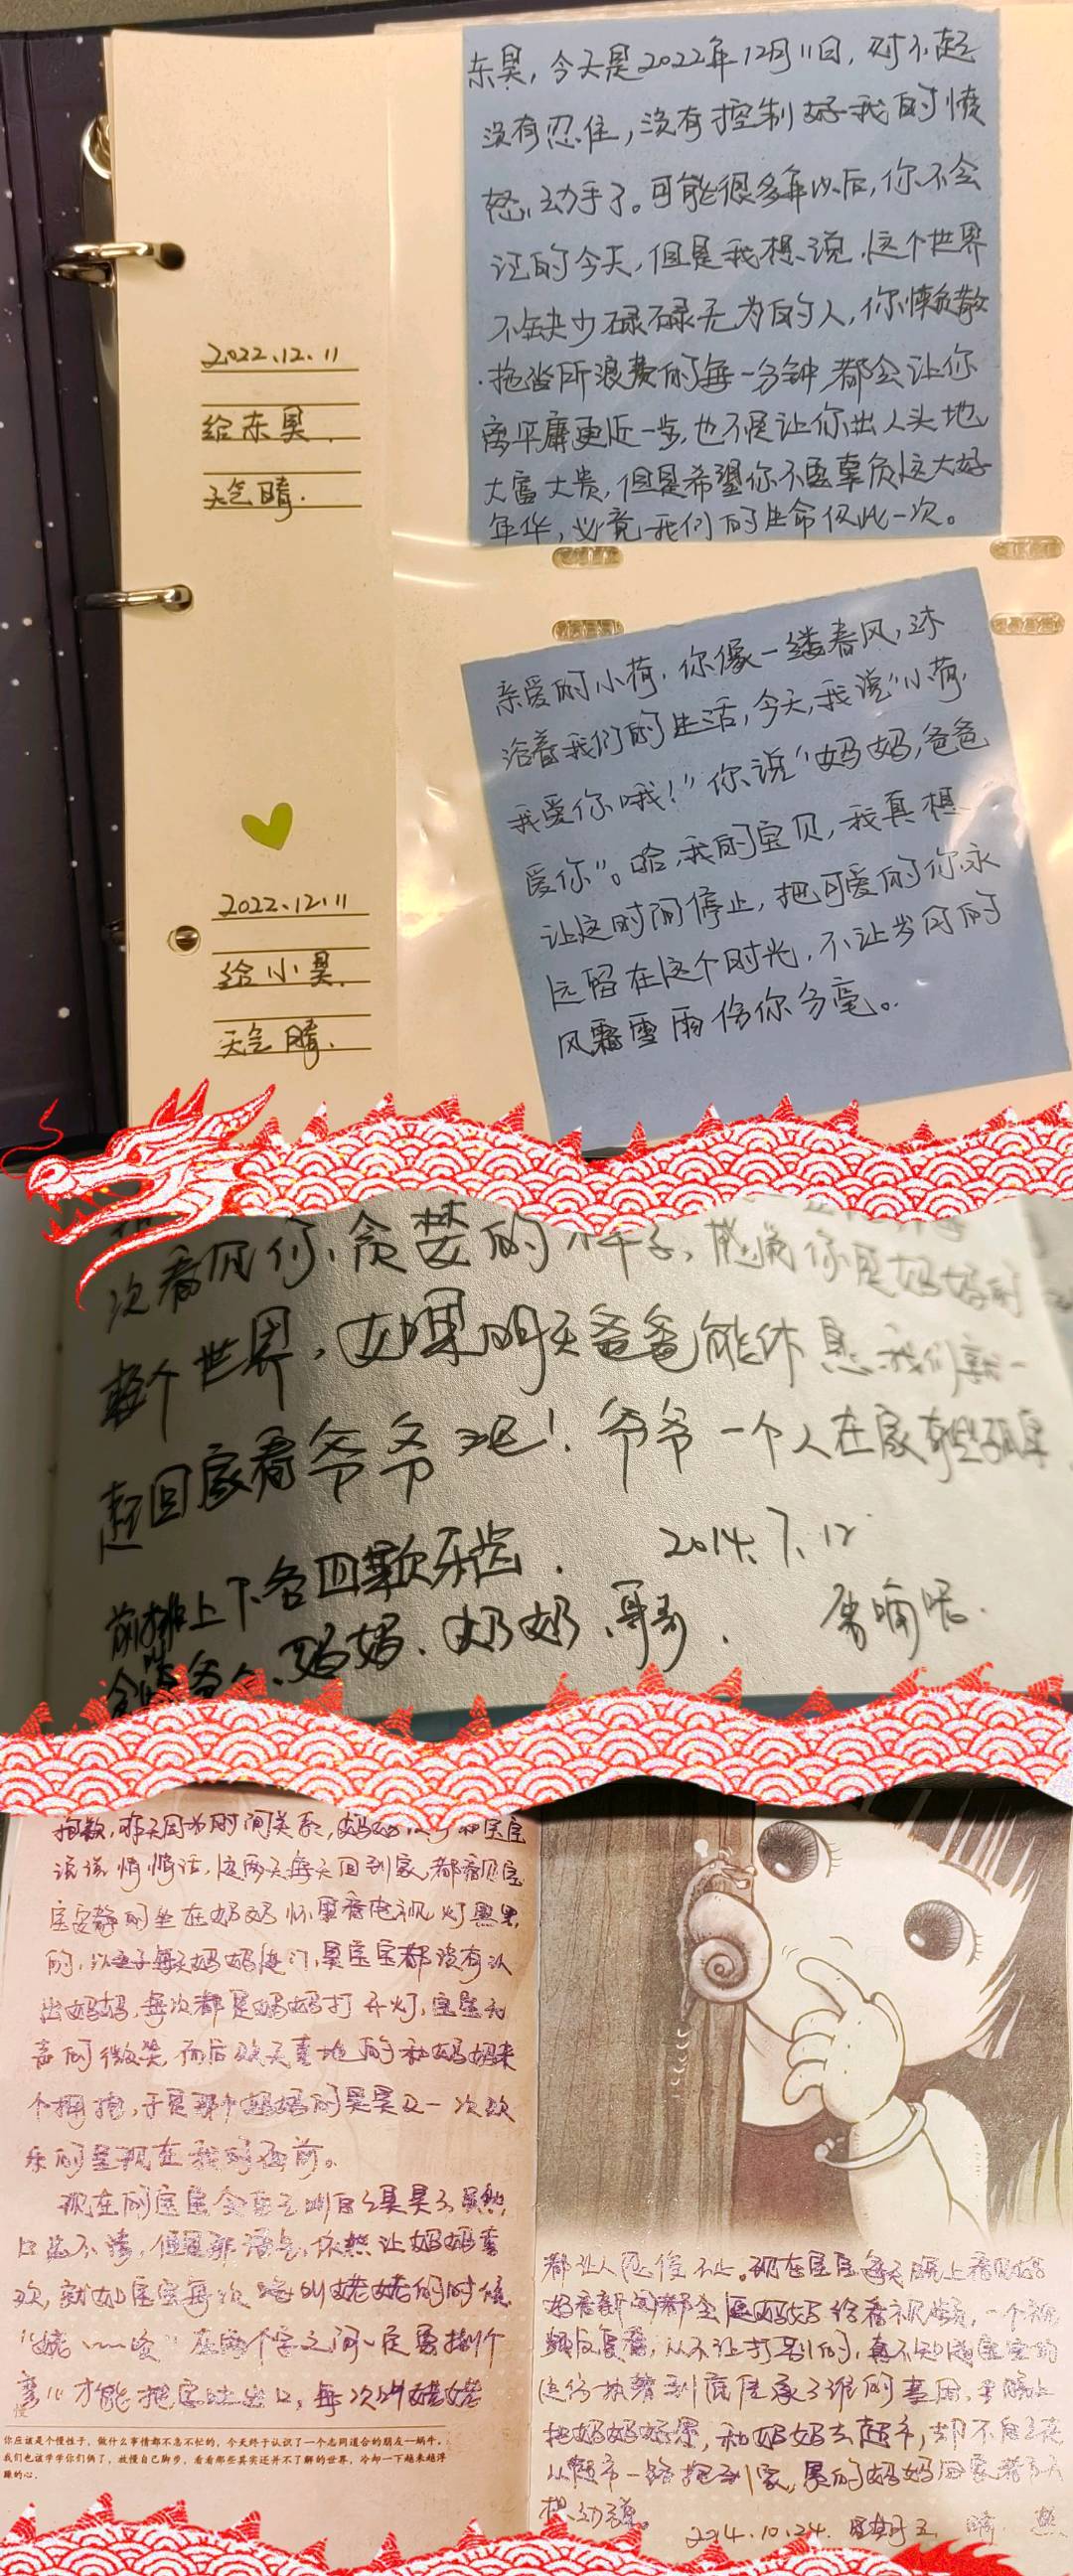 东昊，今天是2022年12月11日，对不起
没有忍住，没有控制好我的愤
怒，动手了。可能很多年以后，你不会
记的今天，但是我想说，这个世界
不缺少碌碌无为的人，你懒散
拖沓所浪费的每一分钟，都会让你
离平庸更近一步，也不是让你出人头地
大富大贵，但是希望你不要辜负这大好
年华，必竟我们的生命仅此一次。
2022.12.11
给东昊.
天气晴.
亲爱的小荷，你像一缕春风，沐
浴着我们的生活，今天，我说“小荷，
我爱你哦！”你说“妈妈，爸爸
爱你”。哈，我的宝贝，我真想
让这时间停止，把可爱的你永
远留在这个时光，不让岁月的
风霜雪雨伤你分毫。
2022.12.11
给小昊.
天气晴.
次看见你贪婪的样子，感觉你是妈妈的
整个世界，如果明天爸爸能休息我们就一
起回家看爷爷吧！爷爷一个人在家有些孤单
前排上下各四颗牙齿. 2014.7.12
会 爸爸、妈妈、奶奶、哥哥.
抱歉，昨天因为时间关系，妈妈 和宝宝
说说悄悄话，这两天每天回到家，都看见宝
宝安静的坐在奶奶怀里看电视，灯黑黑
的，以至于每天妈妈进门，昊宝宝都没有认
出妈妈，每次都是妈妈打开灯，宝宝无
声的微笑，而后欢天喜地的和妈妈来
个拥抱，于是那个妈妈的昊昊又一次欢
乐的呈现在我的面前。
现在的宝宝会自己叫自己昊昊了，虽然
口齿不清，但是那语气，依然让妈妈喜
欢，就如宝宝每次喊叫姥姥的时候
“姥﹏﹏姥”在两个字之间一定要拐个
弯儿才能把字吐出口，每次叫姥姥
慢
你应该是个慢性子，做什么事情都不急不忙的，今天终于认识了一个志同道合的朋友—蜗牛，
我们也该学学你们俩了，放慢自己脚步，看看那些其实还并不了解的世界，冷却一下越来越浮
躁的心。
都让人忍俊不止。现在宝宝每天晚上看见妈
妈看新闻都会让妈妈给看视频，一个视
频反复看，从不让打别的，真不知道宝宝的
这份执着到底传承了谁的基因，
把妈妈 累，和妈妈去超市，却不自己走
从超市一路抱到家，累的妈妈回家
想动弹。
2014.10.24. 星期五 晴